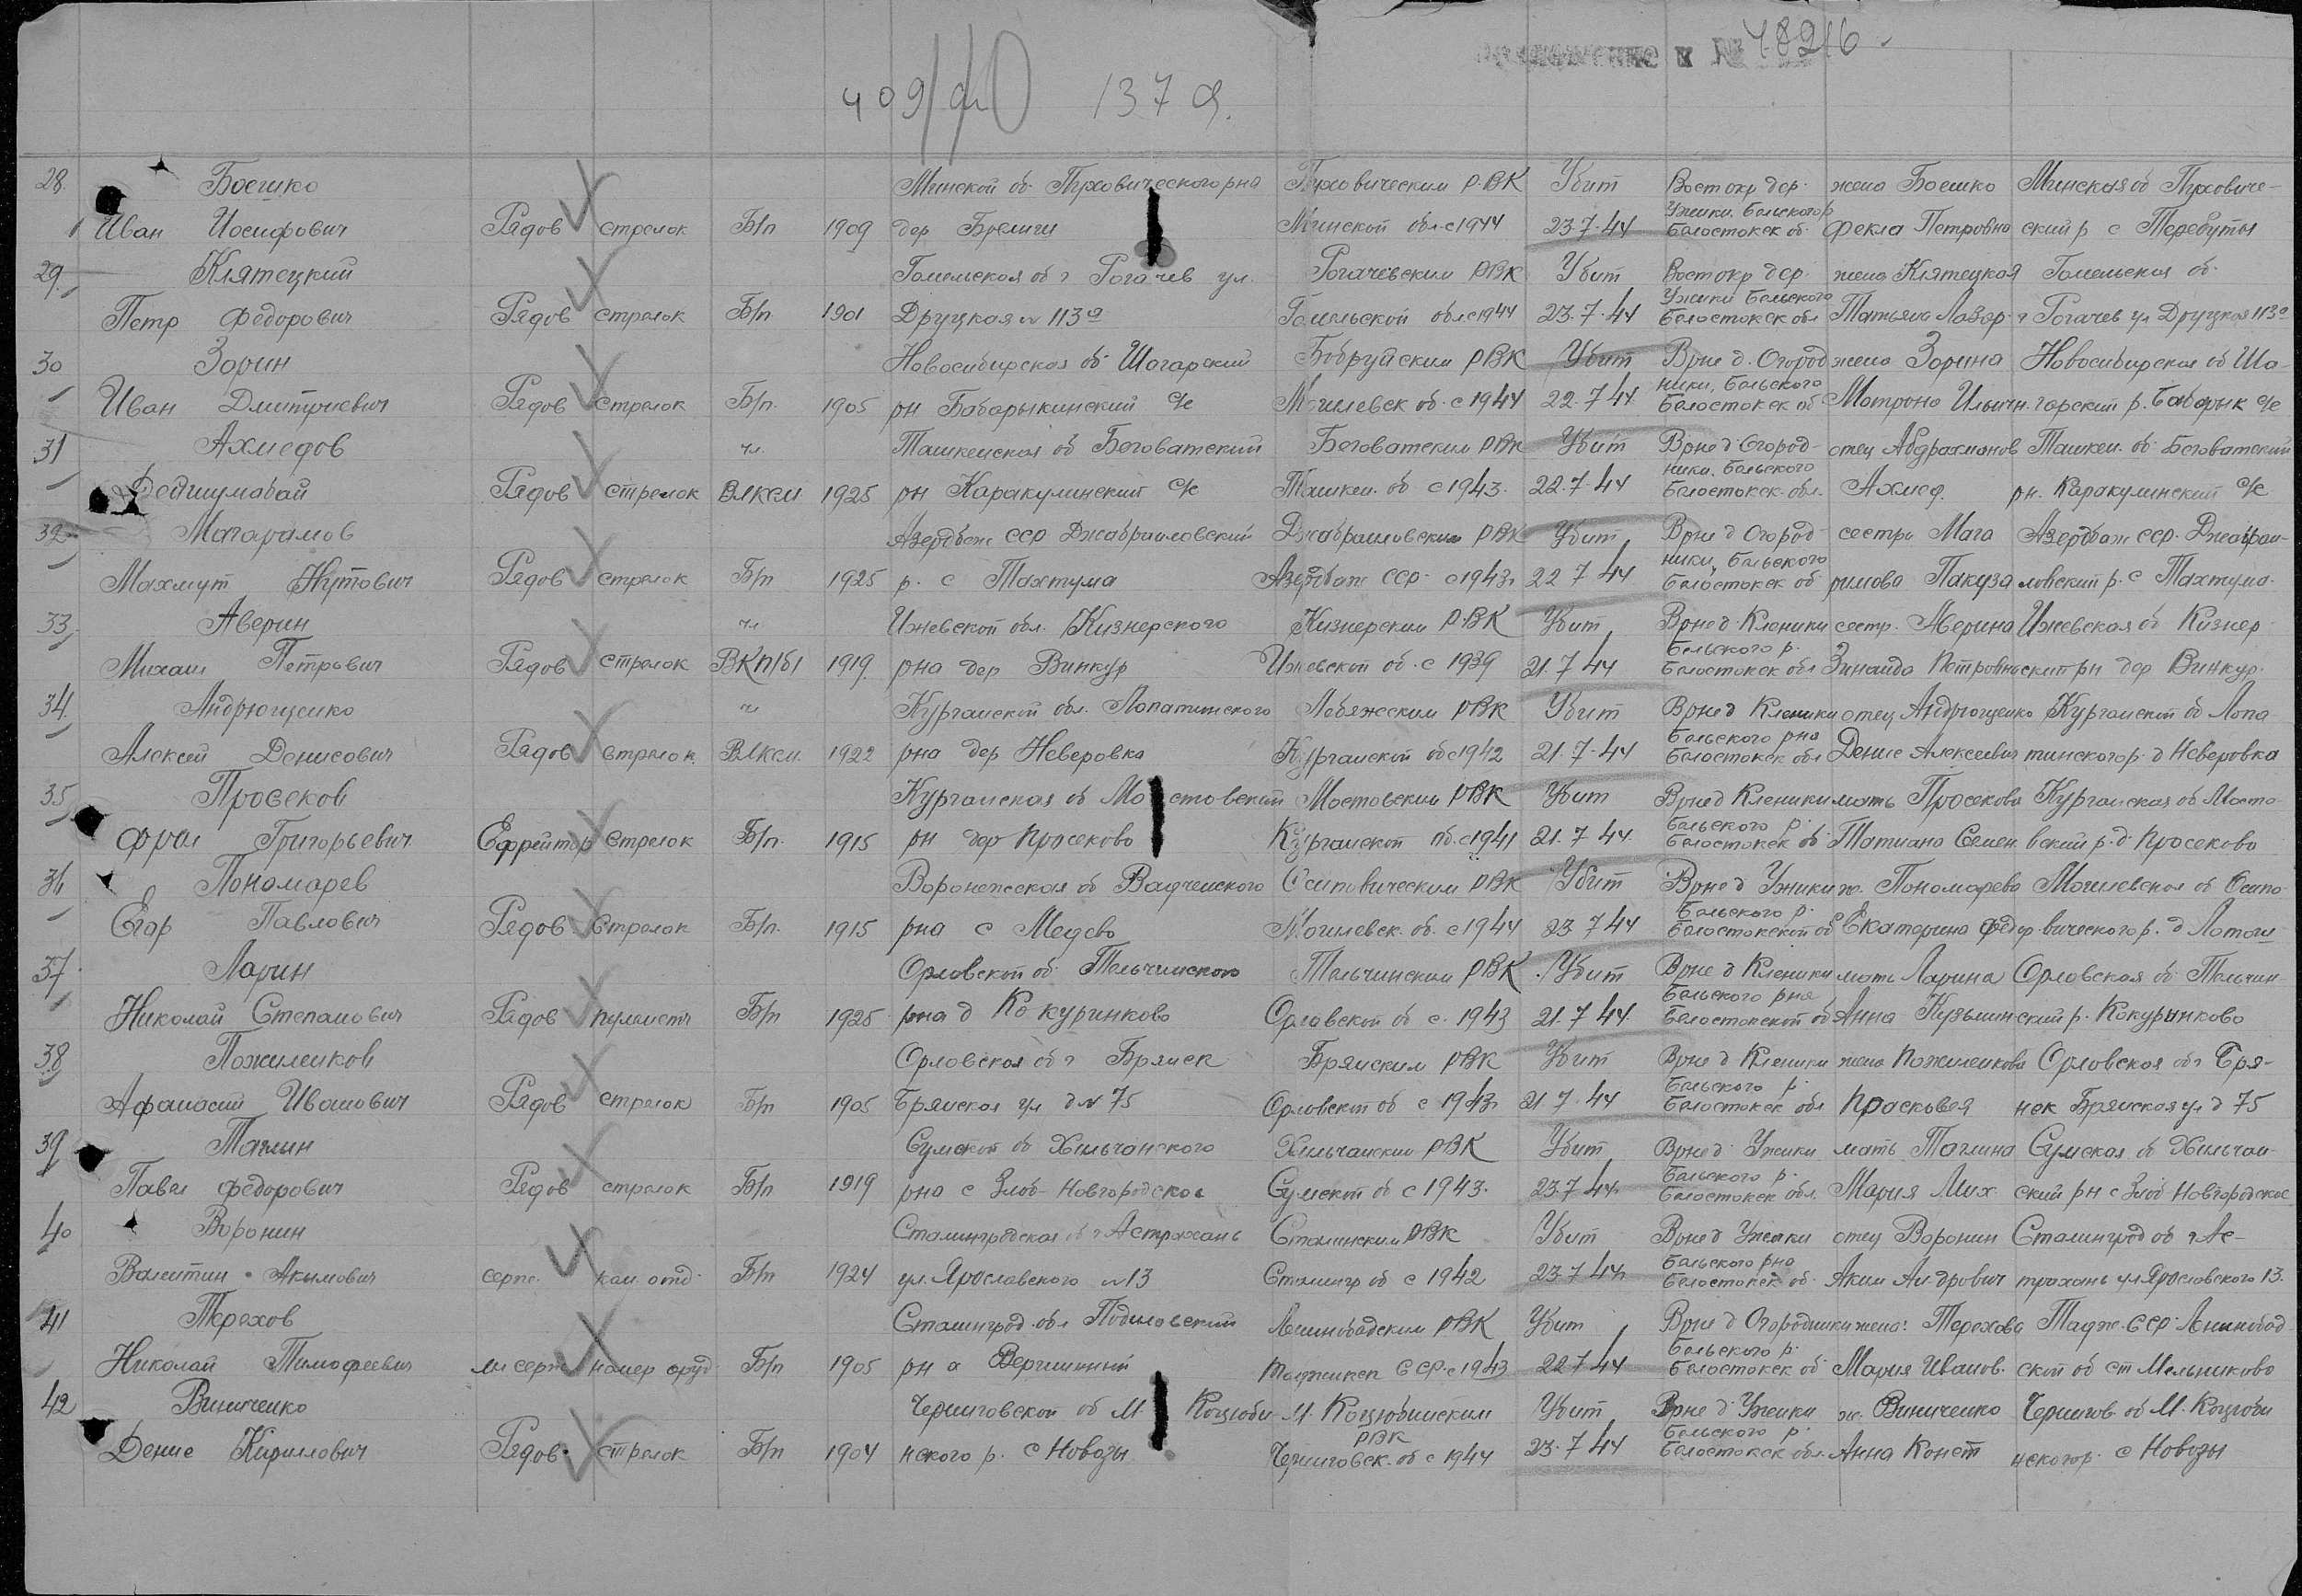 к № 48216
409/ 137
28. Боешко Минской об. Пуховического рна Пуховическим Р.ВК Убит Вост окр дер. жена Боешко Минская об Пуховиче-
Ужики, Бельского р
Иван Иосифович Рядов стрелок Б/п 1909 дер Минской обл. с 1944 23.7.44 Белостокск об. Фекла Петровна ский р с Теребуты
29. Клятецкий Гомельская об г Рогачев ул. Рогачевским РВК Убит Вост окр дер. жена Клятецкая Гомельская об.
Ужики Бельского
Петр Федорович Рядов стрелок Б/п 1901 Друцкая № 113а Гомельской обл с 1944 23.7.44 Белостокск обл Татьяна Лазар. г Рогачев ул Друцкая 113а
30 Зорин Новосибирская об Шагарский Бобруйским РВК Убит В рне д. Огород жена Зорина Новосибирская об Ша-
ники, Бельского
Иван Дмитриевич Рядов стрелок Б/п. 1905 рн Бабарыкинский с/с Могилевск об. с 1944 22.7.44 Белостокск об Матрона Ильичн. гарский р. Бабарык с/с
31 Ахмедов чл. Ташкенская об Беговатский Беговатским РВК Убит В рне д Огород- отец Абдрахманов Ташкен. об Беговатский
ники, Бельского
Рядов стрелок ВЛКСМ 1925 рн Каракулинский с/с Ташкен. об с 1943. 22.7.44 Белостокск. обл. Ахмед. рн. Каракулинский с/с
32 Магарамов Азербдж ССР Джабраиловский Джабраиловским РВК Убит В рне д Огород- сестра Мага Азербдж ССР. Джабраи-
ники, Бельского
Махмут Рядов стрелок Б/п 1925 р. с Тахтума Азербдж ССР с 1943г 22 7 44 Белостокск об римова Пакуза ловский р. с Тахтума.
33. Аверин чл Ижевской обл. Кизнерского Кизнерским РВК Убит В рне д Кленики сестр. Аверина Ижевская об Кизнер
Бельского р.
Михаил Петрович Рядов стрелок ВКП/б/ 1919 рна дер Винкур Ижевской об. с 1939 21.7.44 Белостокск обл Зинаида Петровна ский рн дер Винкур.
34. Андрющенко чл Курганской обл. Лопатинского Лебяжеским РВК Убит В рне д Кленики отец Андрющенко Курганской об Лопа
Бельского рна
Алексей Денисович Рядов стрелок ВЛКСМ. 1922 рна дер Неверовка Курганской об с 1942 21.7.44 Белостокск обл Денис Алексеевич тинского р. д Неверовка
35 Просеков Курганская об Мостовский Мостовским РВК Убит В рне д Кленики мать Просекова Курганская об Мосто-
Бельского р.
Фрол Григорьевич Ефрейтор стрелок Б/п. 1915 рн дер Просеково Курганской об. с 1941 21.7.44 Белостокск об Татиана Семен вский р. д Просеково
36 Пономарев Воронежская об Осиповическим РВК Убит В рне д Ужики ж. Пономарева Могилевская об Осипо
Бельского р.
Егор Павлович Рядов стрелок Б/п. 1915 рна с Могилевск. об. с 1944 23 7 44 Белостокской об Екатерина Федор вического р. д
37 Ларин Орловской об Тельчинского Тельчинским РВК Убит В рне д Кленики мать Ларина Орловская об Тельчин-
Бельского рна
Николай Степанович Рядов пулеметч Б/п 1925 рна д Кокуринково Орловской об с. 1943 21.7.44 Белостокской об Анна Кузьмин ский р. Кокуринково
38 Пожиленков Орловская об г Брянск Брянским РВК Убит В рне д Кленики жена Пожиленкова Орловская об г Бря-
Бельского р.
Афанасий Иванович Рядов стрелок Б/п 1905 Брянская ул д № 75 Орловской об с 1943г 21 7.44 Белостокск обл Прасковья нск Брянская ул д 75
39 Тагин Сумской об Хильчанского Хильчанским РВК Убит В рне д Ужики мать Тагина Сумская об Хильчан-
Бельского р.
Павел Федорович Рядов стрелок Б/п 1919 рна с Злоб-Новгородское Сумской об с 1943. 23.7.44. Белостокск обл. Мария Мих ский рн с Злоб Новгородское
40 Воронин Сталинградская об г Астрахань Сталинским РВК Убит В рне д Ужики отец Воронин Сталинград об г Ас-
Бельского рна
Валентин Акимович серж. ком. отд. Б/п 1924 ул. Ярославского № 13 Сталингр об с 1942 23.7.44г Белостокск об Аким трахань ул Ярославского 13.
41 Терехов Сталинград. обл Ленинобадским РВК Убит В рне д Огородники жена: Терехова Тадж. ССР. Ленинобад
Бельского р.
Николай Тимофеевич мл серж номер оруд. Б/п 1905 рн Таджикск ССР. с 1943 22 7 44 Белостокск об Мария Иванов. ской об ст Мельниково
42 Виниченко Черниговской об М. Коцюби- М. Коцюбинским Убит В рне д. Ужики ж. Виниченко Чернигов. об М. Коцюби
РВК Бельского р.
Денис Кириллович Рядов. стрелок Б/п 1904 нского р. с Новозы Черниговск. об с 1944 23.7.44 Белостокск обл. Анна Конст нского р. с Новозы